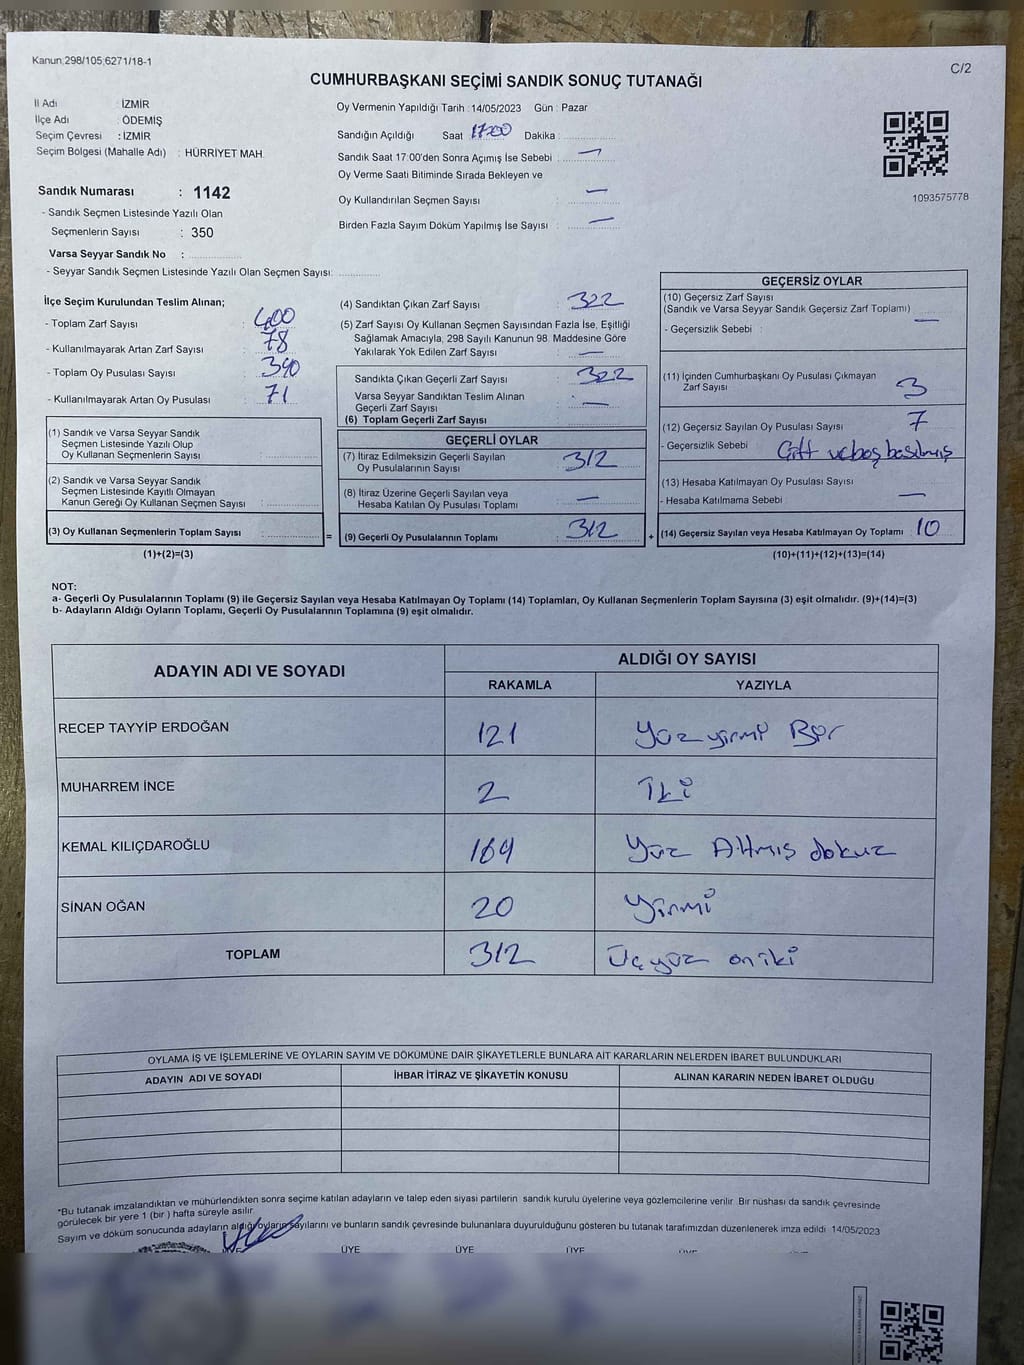 Kanun;298/105;6271/18-1
C/2
CUMHURBAŞKANI SEÇİMİ SANDIK SONUÇ TUTANAĞI
İl Adı : İZMİR
İlçe Adı : ÖDEMİŞ
Seçim Çevresi : İZMİR
Seçim Bölgesi (Mahalle Adı) : HÜRRİYET MAH.
Sandık Numarası : 1142
- Sandık Seçmen Listesinde Yazılı Olan
Seçmenlerin Sayısı : 350
Varsa Seyyar Sandık No :
- Seyyar Sandık Seçmen Listesinde Yazılı Olan Seçmen Sayısı:
Oy Vermenin Yapıldığı Tarih : 14/05/2023 Gün : Pazar
Sandığın Açıldığı Saat 17:00 Dakika :
Sandık Saat 17:00'den Sonra Açımış İse Sebebi : —
Oy Verme Saati Bitiminde Sırada Bekleyen ve
Oy Kullandırılan Seçmen Sayısı : —
Birden Fazla Sayım Döküm Yapılmış İse Sayısı : —
1093575778
İlçe Seçim Kurulundan Teslim Alınan;
- Toplam Zarf Sayısı : 400
- Kullanılmayarak Artan Zarf Sayısı : 78
- Toplam Oy Pusulası Sayısı : 390
- Kullanılmayarak Artan Oy Pusulası : 71
(1) Sandık ve Varsa Seyyar Sandık
Seçmen Listesinde Yazılı Olup
Oy Kullanan Seçmenlerin Sayısı :
(2) Sandık ve Varsa Seyyar Sandık
Seçmen Listesinde Kayıtlı Olmayan
Kanun Gereği Oy Kullanan Seçmen Sayısı :
(3) Oy Kullanan Seçmenlerin Toplam Sayısı :
(1)+(2)=(3)
=
(4) Sandıktan Çıkan Zarf Sayısı : 322
(5) Zarf Sayısı Oy Kullanan Seçmen Sayısından Fazla İse, Eşitliği
Sağlamak Amacıyla, 298 Sayılı Kanunun 98. Maddesine Göre
Yakılarak Yok Edilen Zarf Sayısı : —
Sandıkta Çıkan Geçerli Zarf Sayısı : 322
Varsa Seyyar Sandıktan Teslim Alınan
Geçerli Zarf Sayısı : —
(6) Toplam Geçerli Zarf Sayısı :
GEÇERLİ OYLAR
(7) İtiraz Edilmeksizin Geçerli Sayılan
Oy Pusulalarının Sayısı : 312
(8) İtiraz Üzerine Geçerli Sayılan veya
Hesaba Katılan Oy Pusulası Toplamı : —
(9) Geçerli Oy Pusulalarının Toplamı : 312
+
GEÇERSİZ OYLAR
(10) Geçersiz Zarf Sayısı
(Sandık ve Varsa Seyyar Sandık Geçersiz Zarf Toplamı) : —
- Geçersizlik Sebebi :
(11) İçinden Cumhurbaşkanı Oy Pusulası Çıkmayan
Zarf Sayısı : 3
(12) Geçersiz Sayılan Oy Pusulası Sayısı : 7
- Geçersizlik Sebebi : Çift ve boş basılmış
(13) Hesaba Katılmayan Oy Pusulası Sayısı :
- Hesaba Katılmama Sebebi : —
(14) Geçersiz Sayılan veya Hesaba Katılmayan Oy Toplamı : 10
(10)+(11)+(12)+(13)=(14)
NOT:
a- Geçerli Oy Pusulalarının Toplamı (9) ile Geçersiz Sayılan veya Hesaba Katılmayan Oy Toplamı (14) Toplamları, Oy Kullanan Seçmenlerin Toplam Sayısına (3) eşit olmalıdır. (9)+(14)=(3)
b- Adayların Aldığı Oyların Toplamı, Geçerli Oy Pusulalarının Toplamına (9) eşit olmalıdır.
ADAYIN ADI VE SOYADI ALDIĞI OY SAYISI
RAKAMLA YAZIYLA
RECEP TAYYİP ERDOĞAN 121 Yüz yirmi Bir
MUHARREM İNCE 2 İki
KEMAL KILIÇDAROĞLU 169 Yüz Altmış dokuz
SİNAN OĞAN 20 Yirmi
TOPLAM 312 Üçyüz oniki
OYLAMA İŞ VE İŞLEMLERİNE VE OYLARIN SAYIM VE DÖKÜMÜNE DAİR ŞİKAYETLERLE BUNLARA AİT KARARLARIN NELERDEN İBARET BULUNDUKLARI
ADAYIN ADI VE SOYADI İHBAR İTİRAZ VE ŞİKAYETİN KONUSU ALINAN KARARIN NEDEN İBARET OLDUĞU
*Bu tutanak imzalandıktan ve mühürlendikten sonra seçime katılan adayların ve talep eden siyasi partilerin sandık kurulu üyelerine veya gözlemcilerine verilir. Bir nüshası da sandık çevresinde
görülecek bir yere 1 (bir) hafta süreyle asılır.
Sayım ve döküm sonucunda adayların aldığı oyların sayılarını ve bunların sandık çevresinde bulunanlara duyurulduğunu gösteren bu tutanak tarafımızdan düzenlenerek imza edildi. 14/05/2023
ÜYE ÜYE ÜYE